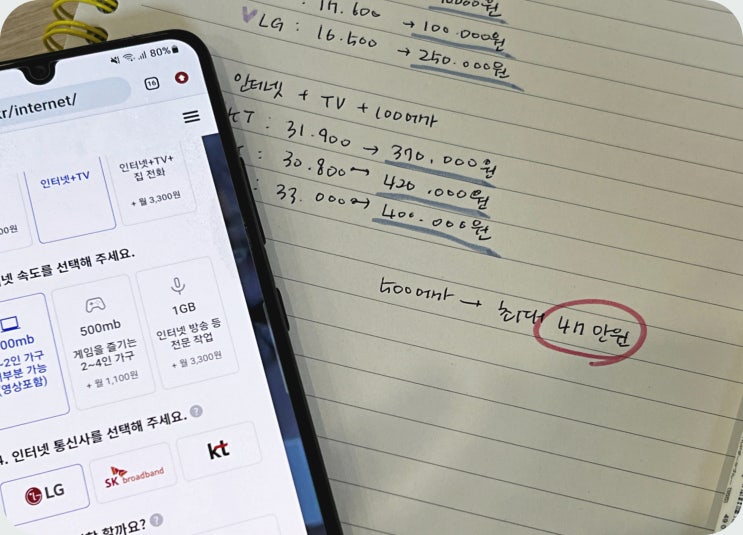 80%
16
kr/internet/
인터넷+TV
인터넷+TV+
집 전화
+ 월 3,300원
00원
넷 속도를 선택해 주세요.
00mb
~2인 가구
부분 가능
(영상포함)
500mb
게임을 즐기는
2~4인 가구
+ 월 1,100원
1GB
인터넷 방송 등
전문 작업
+ 월 3,300원
4. 인터넷 통신사를 선택해 주세요. ?
LG
SK broadband
kt
할까요? ?
: 17.600 → 100.000원
LG : 16.500 → 250.000원
인터넷 + TV + 100메가
KT : 31.900 → 370,000원
: 30.800 → 420.000원
: 33.000 → 400.000원
500메가 → 최대 47만원